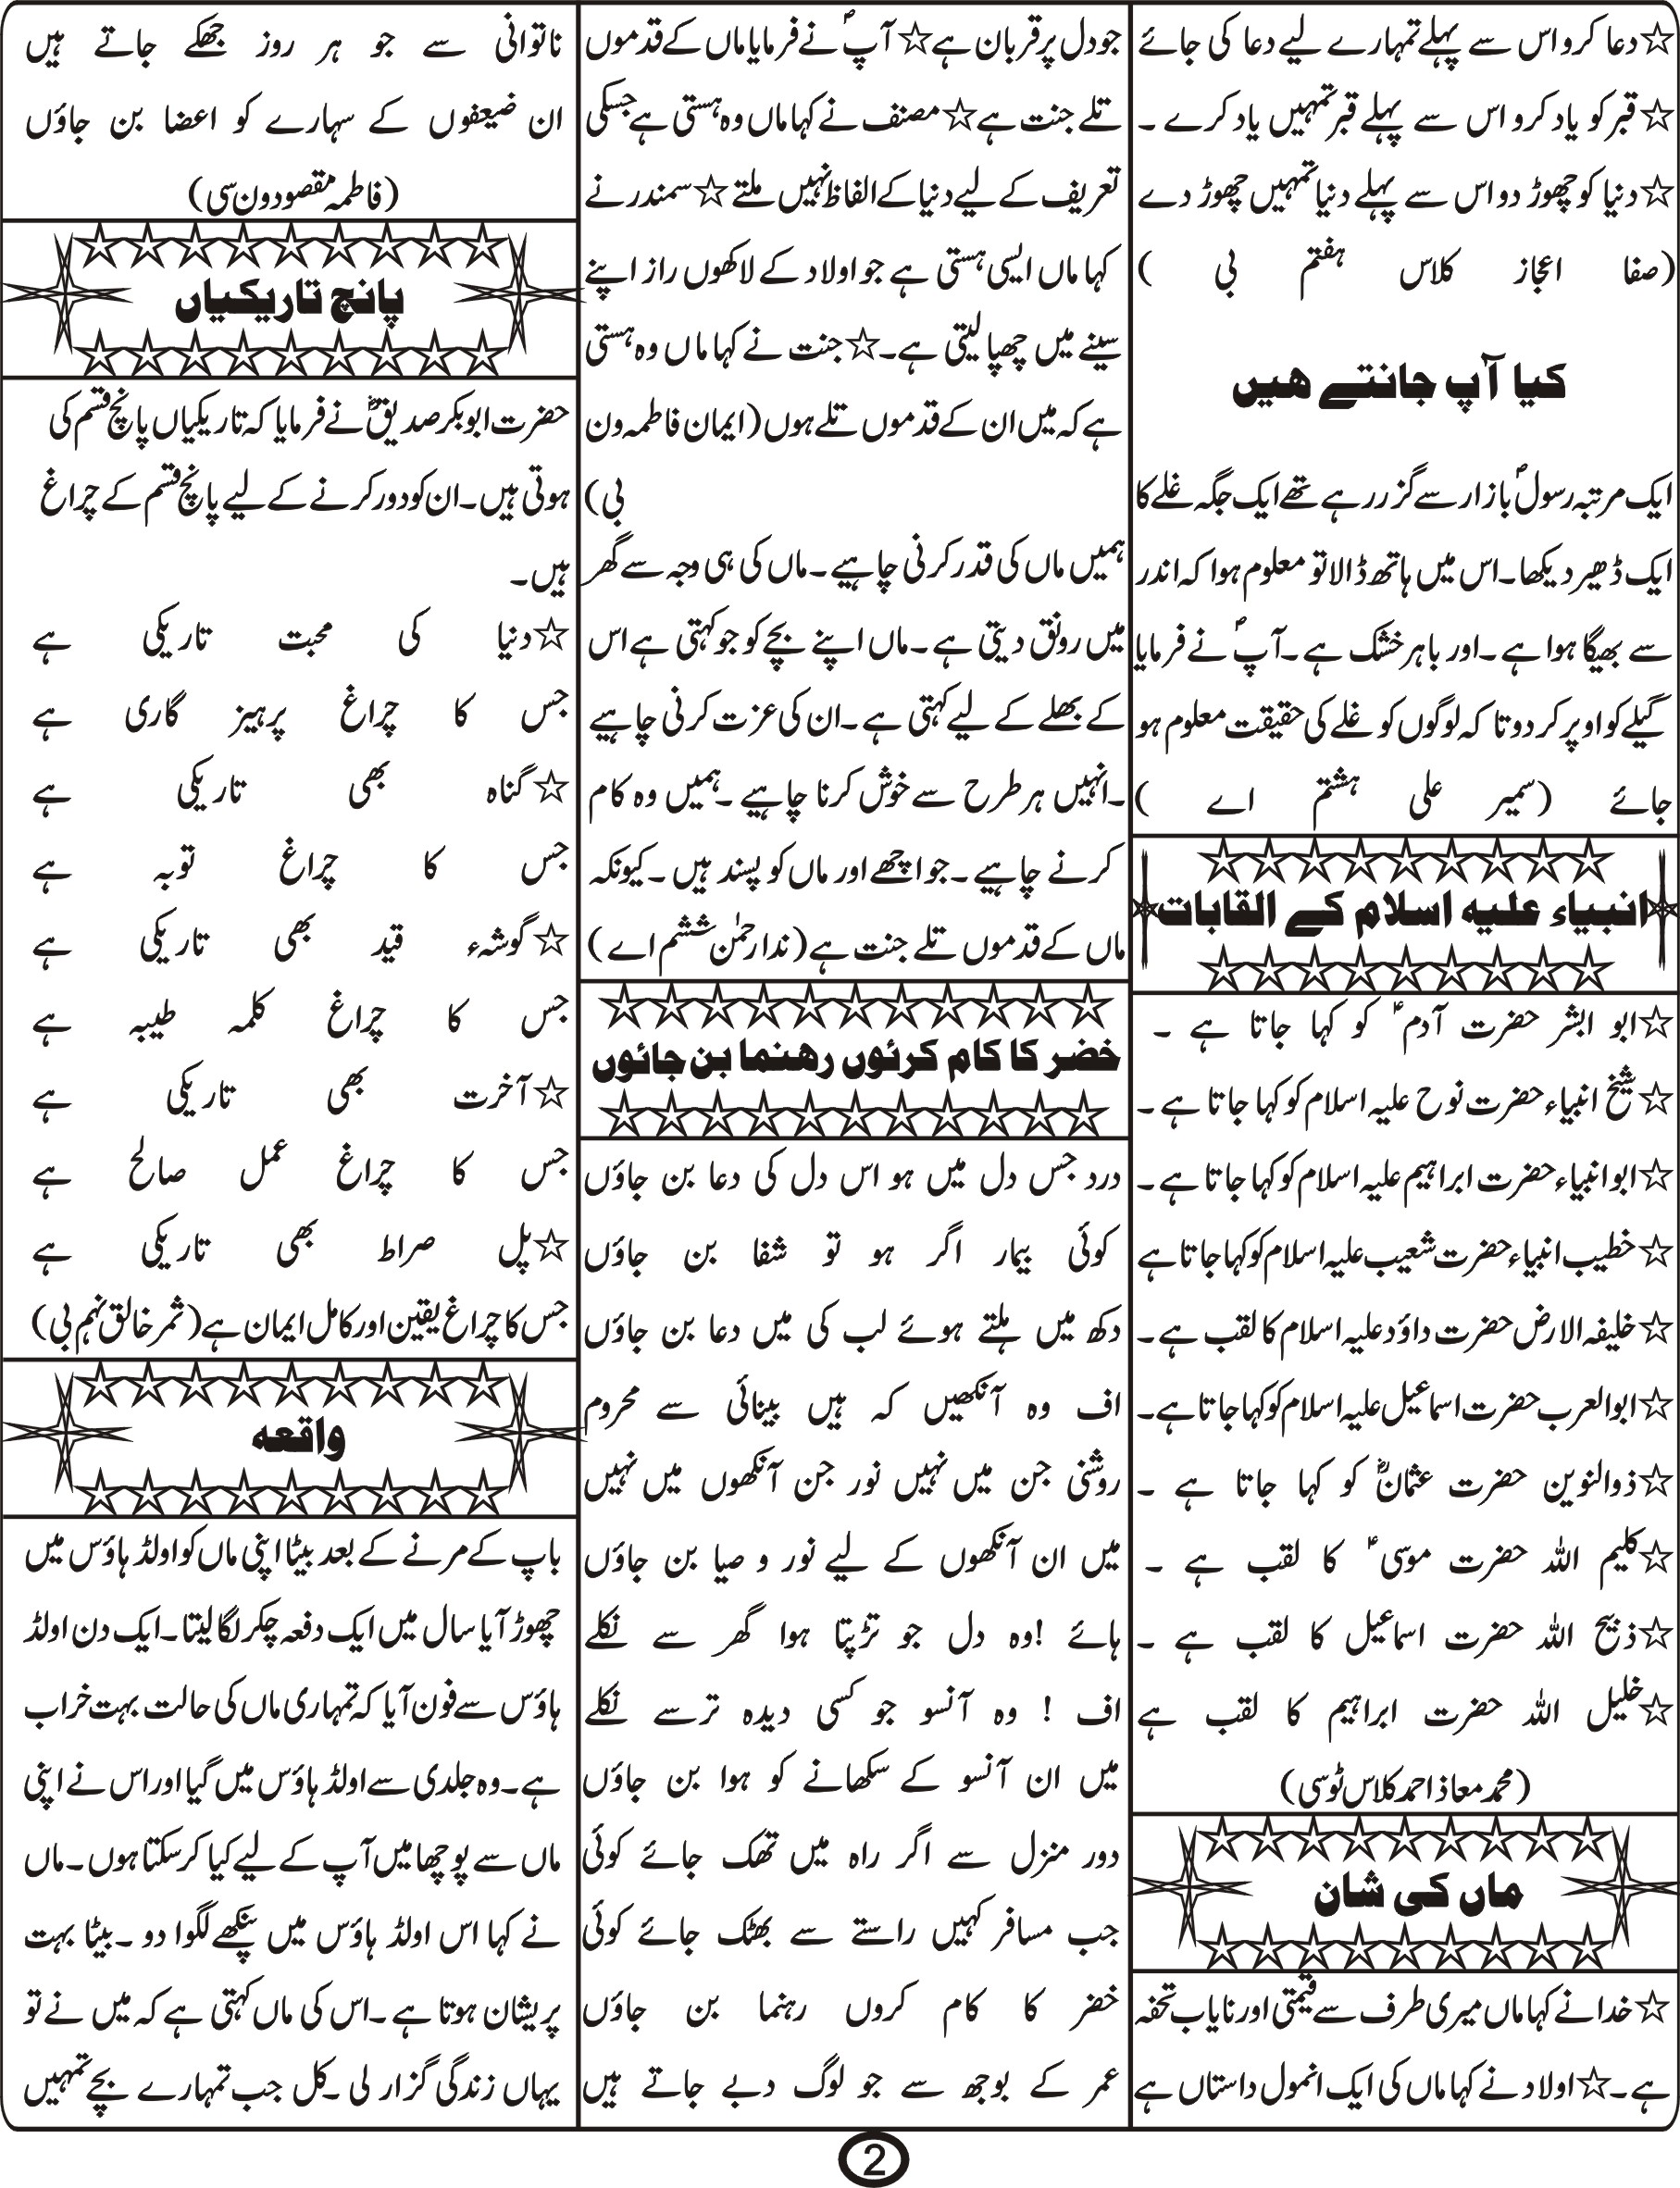 ☆دعا کرو اس سے پہلے تمہارے لیے دعا کی جائے
☆قبر کو یاد کرو اس سے پہلے قبر تمہیں یاد کرے ۔
☆دنیا کو چھوڑ دو اس سے پہلے دنیا تمہیں چھوڑ دے
(صفا اعجاز کلاس ہفتم بی )
کیا آپ جانتے ھیں
ایک مرتبہ رسولؐ بازار سے گزر رہے تھے ایک جگہ غلے کا
ایک ڈھیر دیکھا۔ اس میں ہاتھ ڈالا تو معلوم ہوا کہ اندر
سے بھیگا ہوا ہے ۔ اور باہر خشک ہے ۔ آپؐ نے فرمایا
گیلے کو اوپر کر دو تا کہ لوگوں کو غلے کی حقیقت معلوم ہو
جائے (سمیر علی ہشتم اے )
انبیاء علیہ اسلام کے القابات
☆ابو ابشر حضرت آدم ؑ کو کہا جاتا ہے ۔
☆شیخ انبیاء حضرت نوح علیہ اسلام کو کہا جاتا ہے ۔
☆ابو انبیاء حضرت ابراہیم علیہ اسلام کو کہا جاتا ہے ۔
☆خطیب انبیاء حضرت شعیب علیہ اسلام کو کہا جاتا ہے
☆خلیفہ الارض حضرت داؤد علیہ اسلام کا لقب ہے ۔
☆ابو العرب حضرت اسماعیل علیہ اسلام کو کہا جاتا ہے۔
☆ذوالنوین حضرت عثمانؓ کو کہا جاتا ہے ۔
☆کلیم اللہ حضرت موسی ؑ کا لقب ہے ۔
☆ذبیح اللہ حضرت اسماعیل کا لقب ہے ۔
☆خلیل اللہ حضرت ابراہیم کا لقب ہے
(محمد معاذ احمد کلاس ٹو سی)
ماں کی شان
☆خدا نے کہا ماں میری طرف سے قیمتی اور نایاب تحفہ
ہے ۔☆اولاد نے کہا ماں کی ایک انمول داستاں ہے
جو دل پر قربان ہے ☆ آپؐ نے فرمایا ماں کے قدموں
تلے جنت ہے ☆ مصنف نے کہا ماں وہ ہستی ہے جسکی
تعریف کے لیے دنیا کے الفاظ نہیں ملتے ☆ سمندر نے
کہا ماں ایسی ہستی ہے جو اولاد کے لاکھوں راز اپنے
سینے میں چھپا لیتی ہے۔☆ جنت نے کہا ماں وہ ہستی
ہے کہ میں ان کے قدموں تلے ہوں (ایمان فاطمہ ون
بی)
ہمیں ماں کی قدر کرنی چاہیے ۔ ماں کی ہی وجہ سے گھر
میں رونق دیتی ہے ۔ ماں اپنے بچے کو جو کہتی ہے اس
کے بھلے کے لیے کہتی ہے ۔ ان کی عزت کرنی چاہیے
۔ انہیں ہر طرح سے خوش کرنا چاہیے ۔ ہمیں وہ کام
کرنے چاہیے ۔ جو اچھے اور ماں کو پسند ہیں ۔ کیونکہ
ماں کے قدموں تلے جنت ہے (ندا رحمٰن ششم اے )
خضر کا کام کرئوں رھنما بن جائوں
درد جس دل میں ہو اس دل کی دعا بن جاؤں
کوئی بیمار اگر ہو تو شفا بن جاؤں
دکھ میں ہلتے ہوئے لب کی میں دعا بن جاؤں
اف وہ آنکھیں کہ ہیں بینائی سے محروم
روشنی جن میں نہیں نور جن آنکھوں میں نہیں
میں ان آنکھوں کے لیے نور و صیا بن جاؤں
ہائے !وہ دل جو تڑپتا ہوا گھر سے نکلے
اف ! وہ آنسو جو کسی دیدہ ترسے نکلے
میں ان آنسو کے سکھانے کو ہوا بن جاؤں
دور منزل سے اگر راہ میں تھک جائے کوئی
جب مسافر کہیں راستے سے بھٹک جائے کوئی
خضر کا کام کروں رہنما بن جاؤں
عمر کے بوجھ سے جو لوگ دبے جاتے ہیں
ناتوانی سے جو ہر روز جھکے جاتے ہیں
ان ضیعفوں کے سہارے کو اعضا بن جاؤں
(فاطمہ مقصود ون سی)
پانچ تاریکیاں
حضرت ابو بکر صدیقؓ نے فرمایا کہ تاریکیاں پانچ قسم کی
ہوتی ہیں ۔ ان کو دور کرنے کے لیے پانچ قسم کے چراغ
ہیں ۔
☆دنیا کی محبت تاریکی ہے
جس کا چراغ پرہیز گاری ہے
☆گناہ بھی تاریکی ہے
جس کا چراغ توبہ ہے
☆گوشہء قید بھی تاریکی ہے
جس کا چراغ کلمہ طیبہ ہے
☆آخرت بھی تاریکی ہے
جس کا چراغ عمل صالح ہے
☆پل صراط بھی تاریکی ہے
جس کا چراغ یقین اور کامل ایمان ہے (ثمر خالق نہم بی)
واقعہ
باپ کے مرنے کے بعد بیٹا اپنی ماں کو اولڈ ہاؤس میں
چھوڑ آیا سال میں ایک دفعہ چکر لگا لیتا ۔ ایک دن اولڈ
ہاؤس سے فون آیا کہ تمہاری ماں کی حالت بہت خراب
ہے ۔ وہ جلدی سے اولڈ ہاؤس میں گیا اور اس نے اپنی
ماں سے پوچھا میں آپ کے لیے کیا کر سکتا ہوں ۔ ماں
نے کہا اس اولڈ ہاؤس میں پنکھے لگوا دو ۔ بیٹا بہت
پریشان ہوتا ہے ۔ اس کی ماں کہتی ہے کہ میں نے تو
یہاں زندگی گزار لی ۔ کل جب تمہارے بچے تمہیں
2